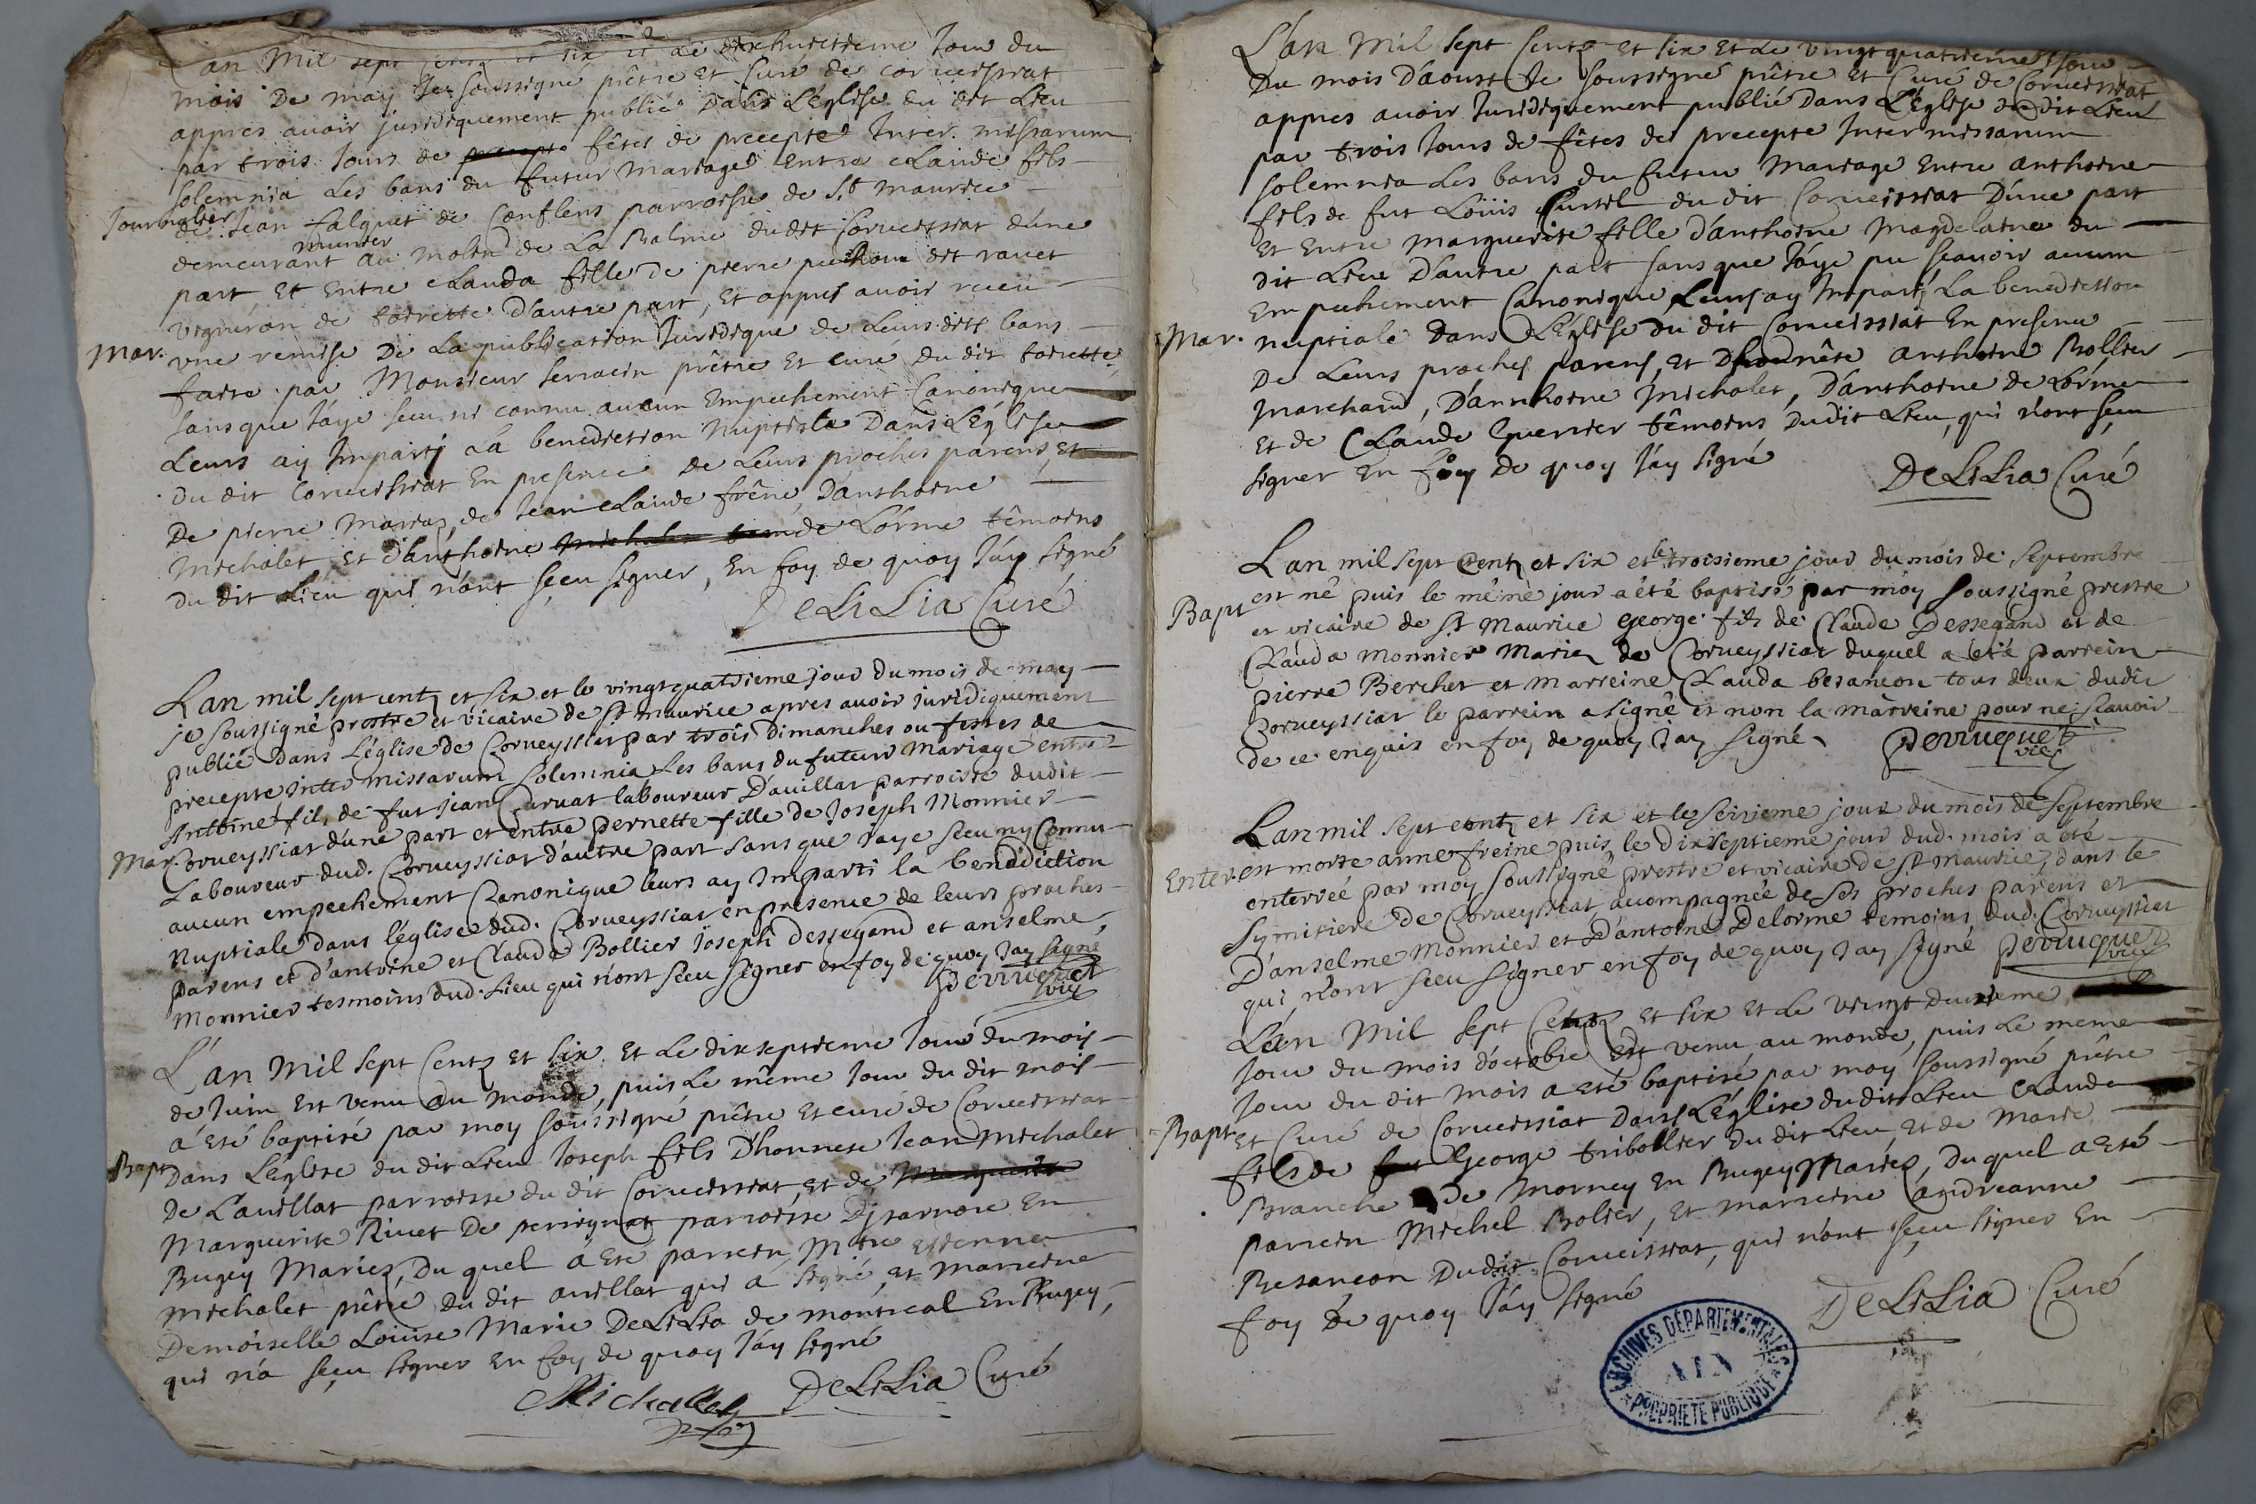 L'an Mil sept cents et six et le dixhuictieme Jour du
mois De may Je soussigné prêtre et Curé de corveissiat
appres avoir juridiquement publié Dans L'église du dit Lieu
par trois Jours de fêtes de precepte Inter missarum
solemnia Les bans du futur Mariage Entre cLaude fils
Journalier
de Jean falquet de Conflens parroisse de St maurice
munier
demeurant au molin de La Balme dudit Corveissiat d'une
part, Et Entre cLauda fille De pierre dit ravet
Vigneron de toirette D'autre part, Et appres avoir receu
Mar. une remise De La publication Juridique de Leurs dits bans
faite par Monsieur prêtre Et curé du dit toirette
sans que J'aye sceu ni connu aucun Empechement Canonique
Leurs ay Imparty La benediction Nuptiale Dans L'Eglise
du dit Corveissiat En presence De Leurs proches parens, Et
De pierre de Jean cLaude frêne, D'anthoine
Michalet, Et d'anthoine de Lorme têmoins
du dit Lieu qui n'ont sçeu signer, En foy de quoy J'ay signé
DeLiLia Curé
Lan mil sept centz et six et le vingtquatrieme jour du mois de may
je soussigné prestre et vicaire de St maurice apres avoir juridiquement
publié Dans L'église de Corveyssiat par trois dimanches ou festes de
precepte Inter missarum solemnia Les bans du futeur Mariage entre
Anttoine fils de fut jean laboureur D'avillat parroisse dudit
Mar. Corveyssiat d'une part et entre pernette fille de Joseph Monnier
Laboureur dud. Corveyssiat d'autre part sans que jaye sceu ny Connu
aucun empechement Canonique leurs ay Imparti la benediction
Nuptiale dans l'église dud. Corveyssiat en presence de leurs proches
parens et d'antoine et Claude Bollier Joseph Dessegand et anselme
Monnier tesmoins dud. Lieu qui n'ont sceu signer en foy de quoy Jay signé
Perruquet
vic
L'an Mil sept Centz et six Et Le dixseptieme Jour du mois
de Juin Est venu Au Monde, puis Le même Jour du dit mois
a été baptisé par moy soussigné prêtre Et curé de Corveissiat
Bapt Dans L'église du dit Lieu Joseph fils D'honneste Jean Michalet
De L'avillat parroisse du dit Corveissiat, et de Marguerite
Marguerite Rivet De perignat parroisse D'isarnore En
Bugey Mariez, Du quel a Eté parrein Mtre Estienne
Michalet prêtre du dit avillat qui a signé, et Marreine
Demoiselle Louise Marie DeLiLia de montreal En Bugey,
qui n'a sçeu signer En foy de quoy J'ay signé
Michallet DeLiLia Curé
L'an Mil sept Centz et six Et Le vingtquatrieme Jour
Du mois D'aoust Je soussigné prêtre Et Curé de Corveissiat
appres avoir Juridiquement publié Dans L'Eglise du dit Lieu
par trois Jours de fêtes de precepte Inter missarum
solemnia Les bans du futur Mariage Entre anthoine
fils de fut Loüis Curtil du dit Corveissiat D'une part
Et Entre Marguerite fille d'anthoine Magdelaine du
dit Lieu D'autre part sans que J'aye pu sçavoir aucun
Empechement Canonique Leurs ay Imparty La benediction
Mar. nuptiale Dans L'Eglise du dit Corveissiat En presence
De Leurs proches parens, Et D'honnête anthoine Bollier
Marchand, D'anthoine Michalet, D'anthoine de Lorme
Et de CLaude Guerrier têmoins Dudit Lieu, qui n'ont sçeu
signer En foy De quoy J'ay signé
DeLiLia Curé
Lan mil sept centz et six et le troisieme jour du mois de septembre
Bapt est né puis le même jour a été baptisé par moy soussigné prestre
et vicaire de St Maurice george fils de Claude Dessegand et de
Clauda monnier Mariez de Corveyssiat duquel a été parrein
pierre Berchet et marreine Clauda besancon tous deux dudit
Corveyssiat le parrein a signé et non la marreine pour ne scavoir
de ce enquis en foy de quoy Jay signé
Perruquet
vic
Lan mil sept centz et six et le seizieme jour du mois de septembre
Enter. est morte anne freine puis le dixseptieme jour dud. mois a été
enterrée par moy soussigné prestre et vicaire de St maurice dans le
symitiere de Corveyssiat acompagnée de ses proches parens et
D'anselme Monnier et D'antoine Delorme temoins dud. Corveyssiat
qui n'ont sceu signer en foy de quoy Jay signé Perruquet
vic
L'an Mil sept Centz et six Et Le vingt deuxieme
Jour du mois d'octobre Est venu au monde, puis Le meme
Jour du dit mois a eté baptisé par moy soussigné prêtre
Bapt Et Curé de Corveissiat Dans L'église du dit Lieu CLaude
fils de fut George tribollier du dit Lieu, et de Marie
Branche De Morney En Bugey Mariez, Du quel a Eté
parrein Michel Bolier, Et marreine andreanne
Besancon Dudit Corveissiat, qui n'ont sçeu signer En
foy De quoy J'ay signé
DeLiLia Curé
ARCHIVES DÉPARTEMENTALES
AIN
PROPRIÉTÉ PUBLIQUE